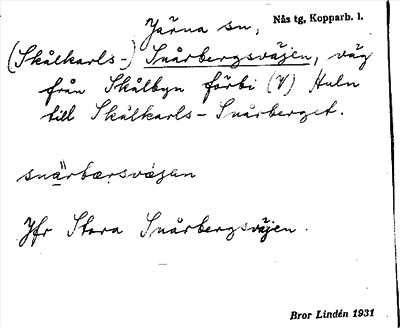 Järna sn, Nås tg, Kopparb. l.
(Skålkarls-) Snårbergsvägen, väg
från Skålbyn förbi (V) Huln
till Skålkarls-Snårberget.
snärbærsvä́jan
Jfr Stora Snårbergsvägen.
Bror Lindén 1931